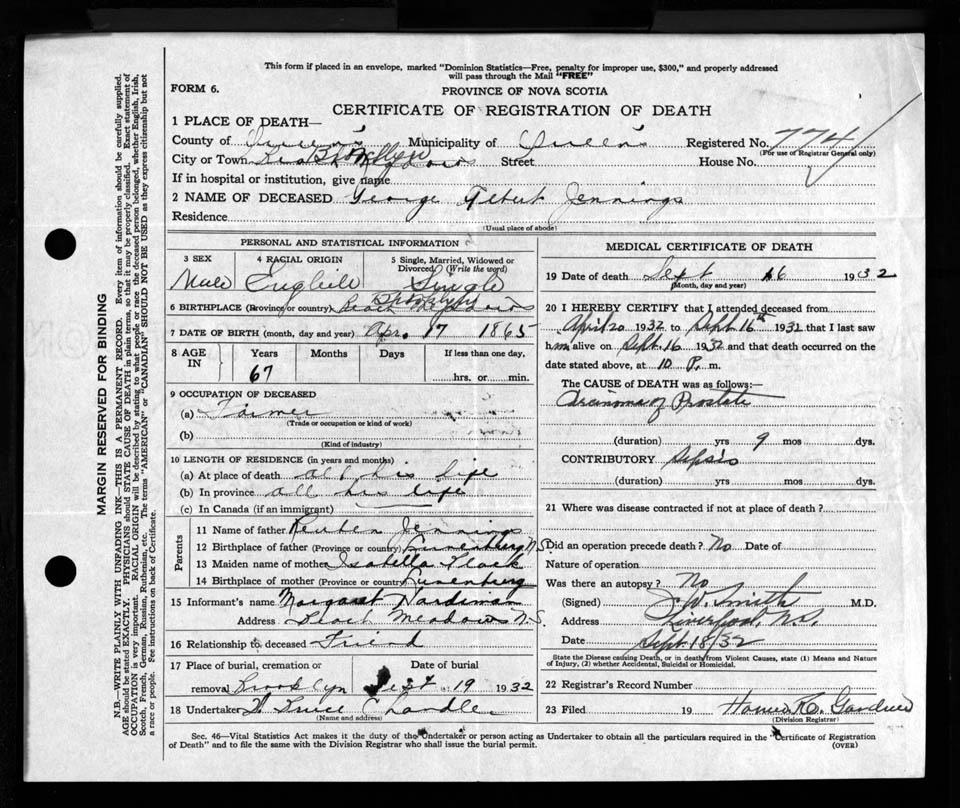 This form if placed in an envelope, marked "Dominion Statistics—Free, penalty for improper use, $300," and properly addressed
will pass through the Mail "FREE"
FORM 6.
PROVINCE OF NOVA SCOTIA
CERTIFICATE OF REGISTRATION OF DEATH
1 PLACE OF DEATH—
County of Queen's Municipality of Queens Registered No. 774
(For use of Registrar General only)
City or Town Brooklyn Street House No.
If in hospital or institution, give name
2 NAME OF DECEASED George Albert Jennings
Residence
(Usual place of abode)
PERSONAL AND STATISTICAL INFORMATION
3 SEX 4 RACIAL ORIGIN 5 Single, Married, Widowed or
Divorced (Write the word)
Male English Single
Brooklyn
6 BIRTHPLACE (Province or country) Meadows
7 DATE OF BIRTH (month, day and year) Apr. 17 1865
8 AGE IN Years Months Days If less than one day,
67 hrs. or min.
9 OCCUPATION OF DECEASED
(a) Farmer
(Trade or occupation or kind of work)
(b)
(Kind of industry)
10 LENGTH OF RESIDENCE (in years and months)
(a) At place of death all his life
(b) In province all his life
(c) In Canada (if an immigrant)
Parents
11 Name of father Reuben Jennings
12 Birthplace of father (Province or country) Lunenburg N.S.
13 Maiden name of mother Isabella
14 Birthplace of mother (Province or country) Lunenburg
15 Informant's name Margaret Hardiman
Address Beach Meadows N.S.
16 Relationship to deceased Friend
17 Place of burial, cremation or Date of burial
removal Brooklyn Sept 19 1932
18 Undertaker
(Name and address)
MEDICAL CERTIFICATE OF DEATH
19 Date of death Sept 16 1932
(Month, day and year)
20 I HEREBY CERTIFY that I attended deceased from
April 20 1932 to Sept. 16th 1932 that I last saw
him alive on Sept. 16 1932 and that death occurred on the
date stated above, at 10 P. m.
The CAUSE of DEATH was as follows:—
Carcinoma of Prostate
(duration) yrs 9 mos dys.
CONTRIBUTORY Sepsis
(duration) yrs mos dys.
21 Where was disease contracted if not at place of death?
Did an operation precede death? No Date of
Nature of operation
Was there an autopsy? No
(Signed) J. W. Smith M.D.
Address Liverpool, N.S.
Date Sept. 18/32
State the Disease causing Death, or in death from Violent Causes, state (1) Means and Nature
of Injury, (2) whether Accidental, Suicidal or Homicidal.
22 Registrar's Record Number
23 Filed 19
(Division Registrar)
Sec. 46—Vital Statistics Act makes it the duty of the Undertaker or person acting as Undertaker to obtain all the particulars required in the "Certificate of Registration
of Death" and to file the same with the Division Registrar who shall issue the burial permit. (OVER)
MARGIN RESERVED FOR BINDING
N.B.—WRITE PLAINLY WITH UNFADING INK—THIS IS A PERMANENT RECORD. Every item of information should be carefully supplied.
AGE should be stated EXACTLY. PHYSICIANS should STATE CAUSE OF DEATH in plain terms, so that it may be properly classified. Exact statement of
OCCUPATION is very important. RACIAL ORIGIN will be described by stating to what people or race the deceased person belonged, whether English, Irish,
Scotch, French, German, Russian, Ruthenian, etc. The terms "AMERICAN" or "CANADIAN" SHOULD NOT BE USED as they express citizenship but not
a race or people. Fee instructions on back of Certificate.